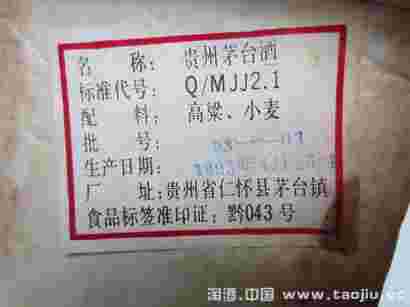 名 称: 贵州茅台酒
标准代号: Q/MJJ2.1
配 料: 高粱、小麦
批 号:
生产日期:
厂 址: 贵州省仁怀县茅台镇
食品标签准印证: 黔043号
淘酒.中国 www.taojiu.cc